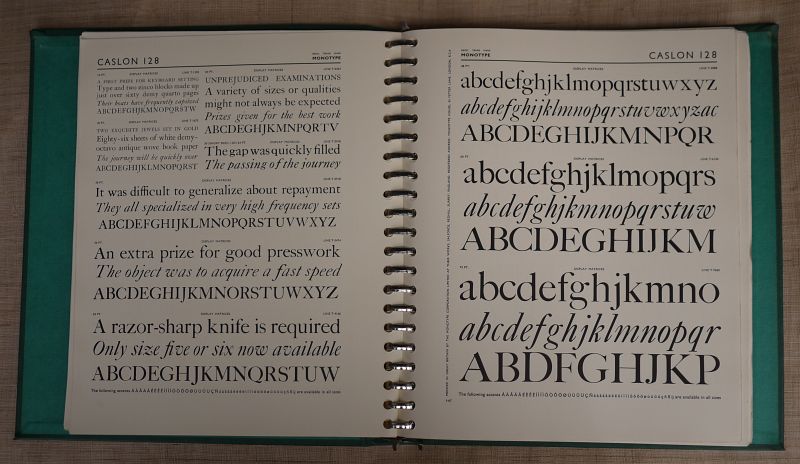 CASLON 128
MONOTYPE
DISPLAY MATRICES
A FIRST PRIZE FOR KEYBOARD SETTING
Type and two zinco blocks made up
just over sixty demy quarto pages
Their boats have frequently capsized
ABCDEFGHIJKLMNOPQRSTUW
DISPLAY MATRICES
TWO EXQUISITE JEWELS SET IN GOLD
Eighty-six sheets of white demy-
octavo antique wove book paper
The journey will be quickly over
ABCDEFGHIJKLMNOPQRST
DISPLAY MATRICES
UNPREJUDICED EXAMINATIONS
A variety of sizes or qualities
might not always be expected
Prizes given for the best work
ABCDEFGHIJKMNPQRTV
The gap was quickly filled
The passing of the journey
DISPLAY MATRICES
It was difficult to generalize about repayment
They all specialized in very high frequency sets
ABCDEFGHIJKLMNOPQRSTUVWXYZ
DISPLAY MATRICES
An extra prize for good presswork
The object was to acquire a fast speed
ABCDEGHIJKMNORSTUWXYZ
DISPLAY MATRICES
A razor-sharp knife is required
Only size five or six now available
ABCDEGHJKMNQRSTUW
The following accents are available in all sizes
MONOTYPE
CASLON 128
DISPLAY MATRICES
abcdefghjklmopqrstuwxyz
abcdefghjkmnopqrstuvwxyzac
ABCDEFGHIJKMNPQR
DISPLAY MATRICES
abcdefghjklmopqrs
abcdefghjkmnopqrstuw
ABCDEGHIJKM
DISPLAY MATRICES
abcdefghjkmno
abcdefghjklmnopqr
ABDFGHJKP
The following accents are available in all sizes